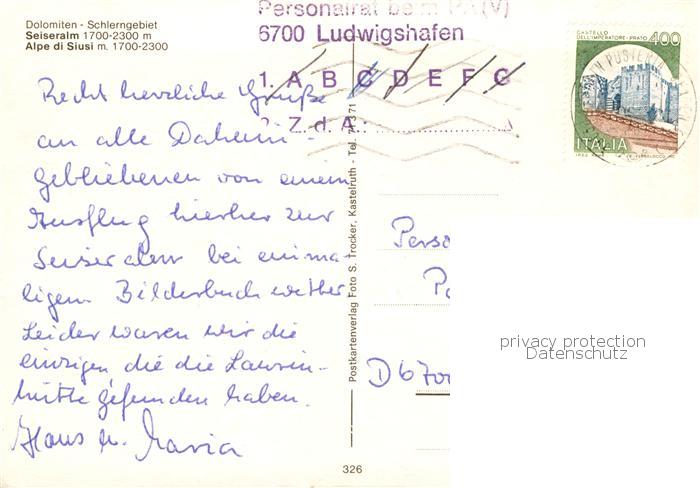 Dolomiten - Schlerngebiet
Seiseralm 1700-2300 m
Alpe di Siusi m. 1700-2300
Personalrat beim (V)
6700 Ludwigshafen
1. A B C D E F G
2. Z. d. A.
CASTELLO
DELL'IMPERATORE-PRATO 400
PUSTERIA
ITALIA
Recht herzliche Grüße
an alle Daheim-
gebliebenen von einem
Ausflug hierher zur
Seiseralm bei einma-
ligem Bilderbuchwetter
Leider waren wir die
einzigen die die Laurin-
hütte gefunden haben.
Hans u. Maria
Postkartenverlag Foto S. Trocker, Kastelruth - Tel. 71371
326
Perso
Po
D 6700
privacy protection
Datenschutz